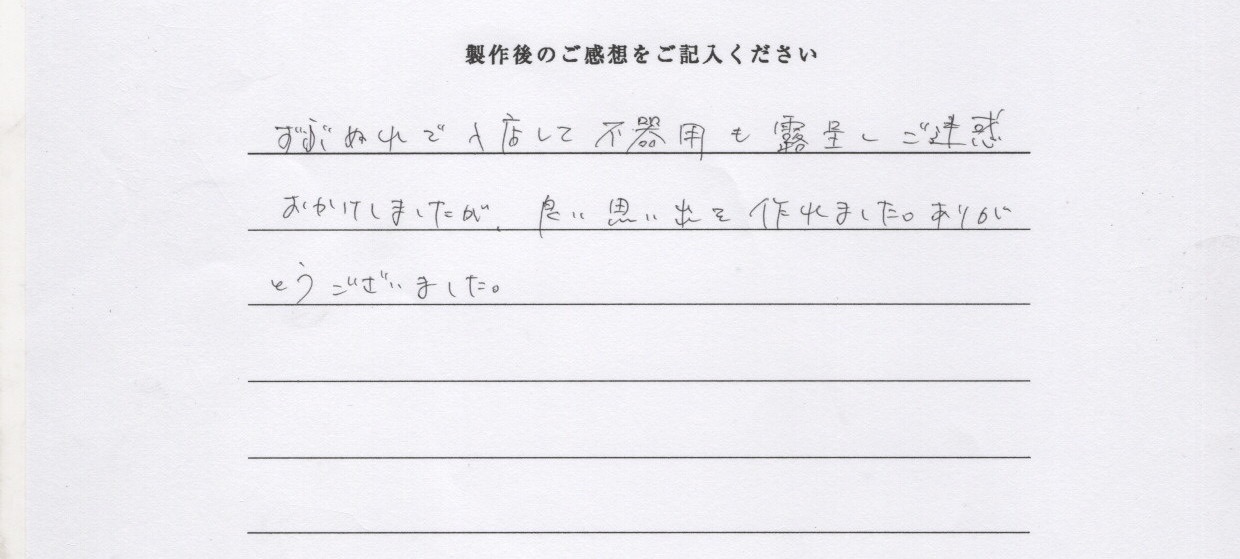 製作後のご感想をご記入ください
ずぶぬれで入店して不器用も露呈しご迷惑
おかけしましたが、良い思い出を作れました。ありが
とうございました。